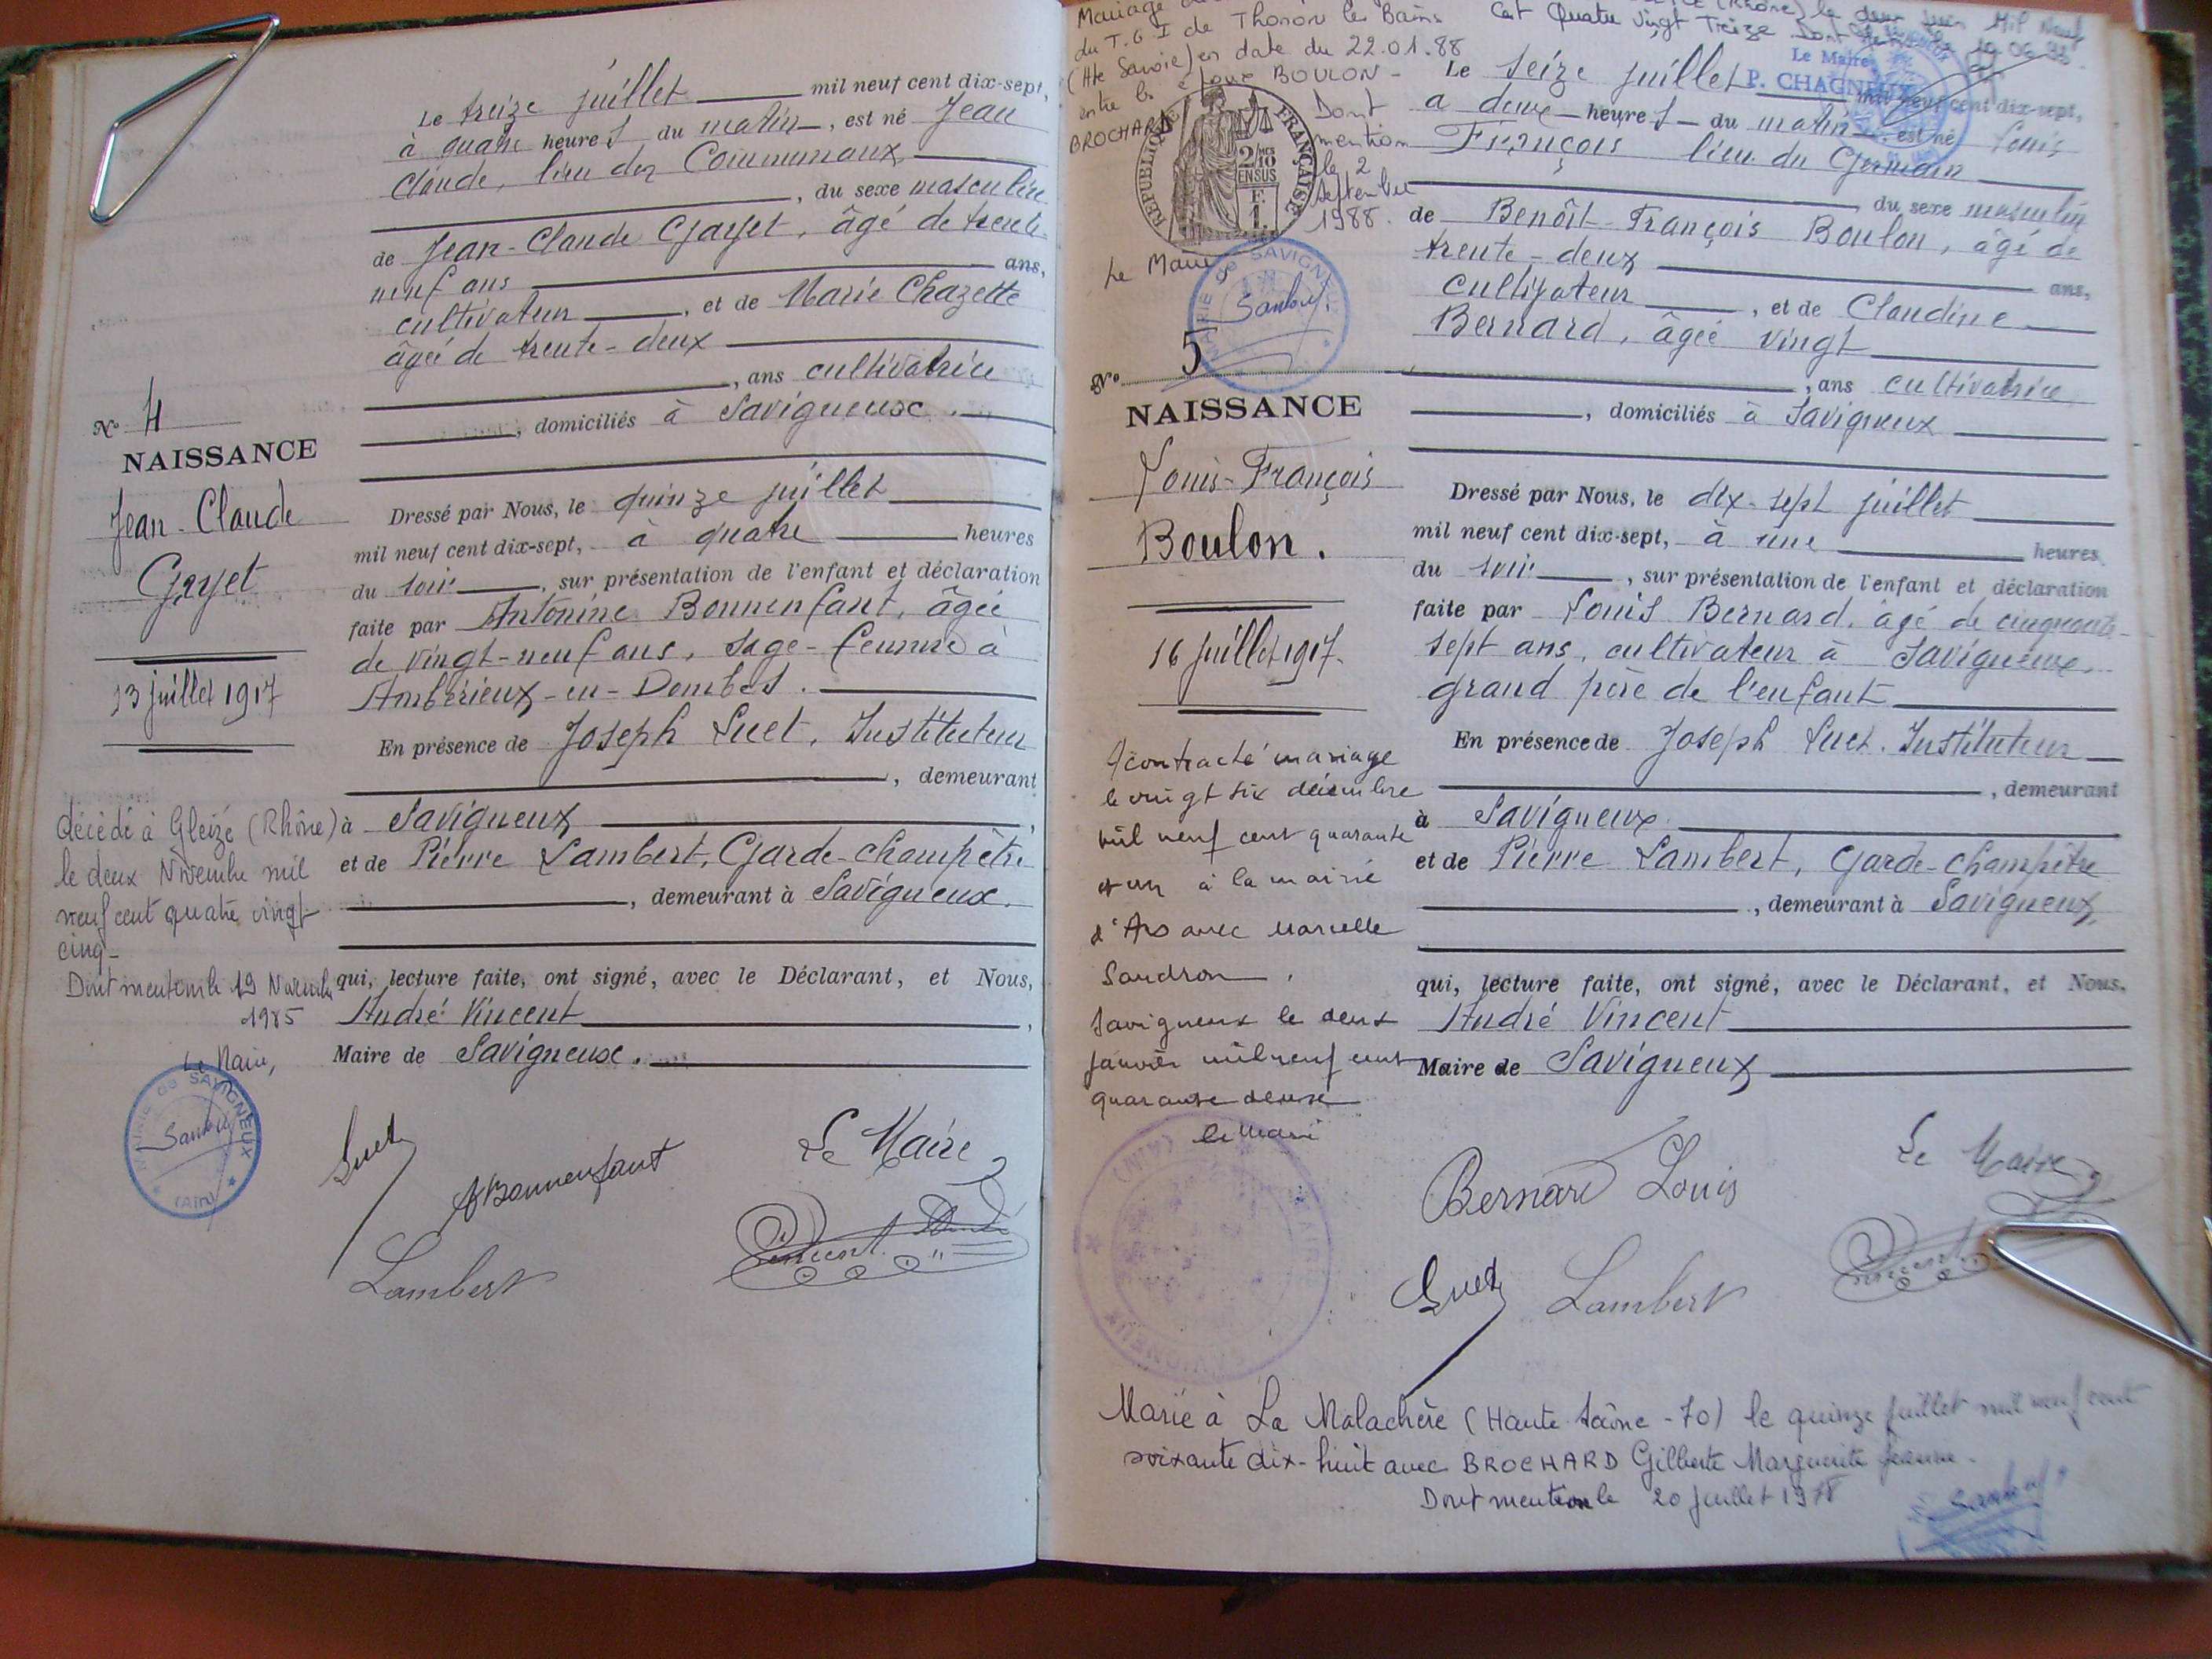 Le treize juillet mil neuf cent dix-sept,
à quatre heures du matin, est né Jean
Claude, lieu des Communaux
, du sexe masculin
de Jean-Claude Gayet, âgé de trente
neuf ans ans,
cultivateur, et de Marie Chazette
âgée de trente-deux
, ans cultivatrice
, domiciliés à Savigneux.
No 4
NAISSANCE
Jean-Claude
Gayet
13 juillet 1917
Dressé par Nous, le quinze juillet
mil neuf cent dix-sept, à quatre heures
du soir, sur présentation de l'enfant et déclaration
faite par Antonine Bonnenfant, âgée
de vingt-neuf ans, sage-femme à
Ambérieux-en-Dombes.
En présence de Joseph Suet, Instituteur
, demeurant
à Savigneux,
et de Pierre Lambert, Garde-champêtre
, demeurant à Savigneux.
qui, lecture faite, ont signé, avec le Déclarant, et Nous,
André Vincent,
Maire de Savigneux.
décédé à Gleizé (Rhône)
le deux Novembre mil
neuf cent quatre vingt
cinq-
Dont mention le 19 Novembre
1985
Le Maire,
MAIRIE de SAVIGNEUX
(Ain)
Suet
ABonnenfant
Le Maire
Lambert
Vincent André
Mariage
du T.G.I de Thonon les Bains
(Hte Savoie) en date du 22.01.88
entre les époux BOULON-
BROCHARD
Dont
mention
le 2
Septembre
1988.
(Rhône) le deux Juin Mil Neuf
Cent Quatre Vingt Treize
Le Maire
P. CHAGNEUX
RÉPUBLIQUE FRANÇAISE
2/10 MES
EN SUS
F.
1.
Le Maire
MAIRIE de SAVIGNEUX
Le seize juillet mil neuf cent dix-sept,
a deux heures du matin, est né Louis
François lieu du Germain
du sexe masculin
de Benoît-François Boulon, âgé de
trente-deux
ans,
cultivateur, et de Claudine
Bernard, âgée vingt
, ans cultivatrice
, domiciliés à Savigneux
No 5
NAISSANCE
Louis-François
Boulon.
16 juillet 1917.
Dressé par Nous, le dix-sept juillet
mil neuf cent dix-sept, à une heures
du soir, sur présentation de l'enfant et déclaration
faite par Louis Bernard, âgé de cinquante-
sept ans, cultivateur à Savigneux,
grand père de l'enfant
En présence de Joseph Suet, Instituteur
, demeurant
à Savigneux.
et de Pierre Lambert, Garde-champêtre
, demeurant à Savigneux,
qui, lecture faite, ont signé, avec le Déclarant, et Nous,
André Vincent
Maire de Savigneux
A contracté mariage
le vingt six décembre
mil neuf cent quarante
et un à la mairie
d'Ars avec Marcelle
Sandron.
Savigneux le deux
janvier mil neuf cent
quarante deux
le Maire
Bernard Louis
Le Maire
Suet
Lambert
Vincent
Marié à La Malachère (Haute Saône -70) le quinze juillet mil neuf cent
soixante dix-huit avec BROCHARD Gilberte Marguerite Jeanne.
Dont mention le 20 juillet 1978